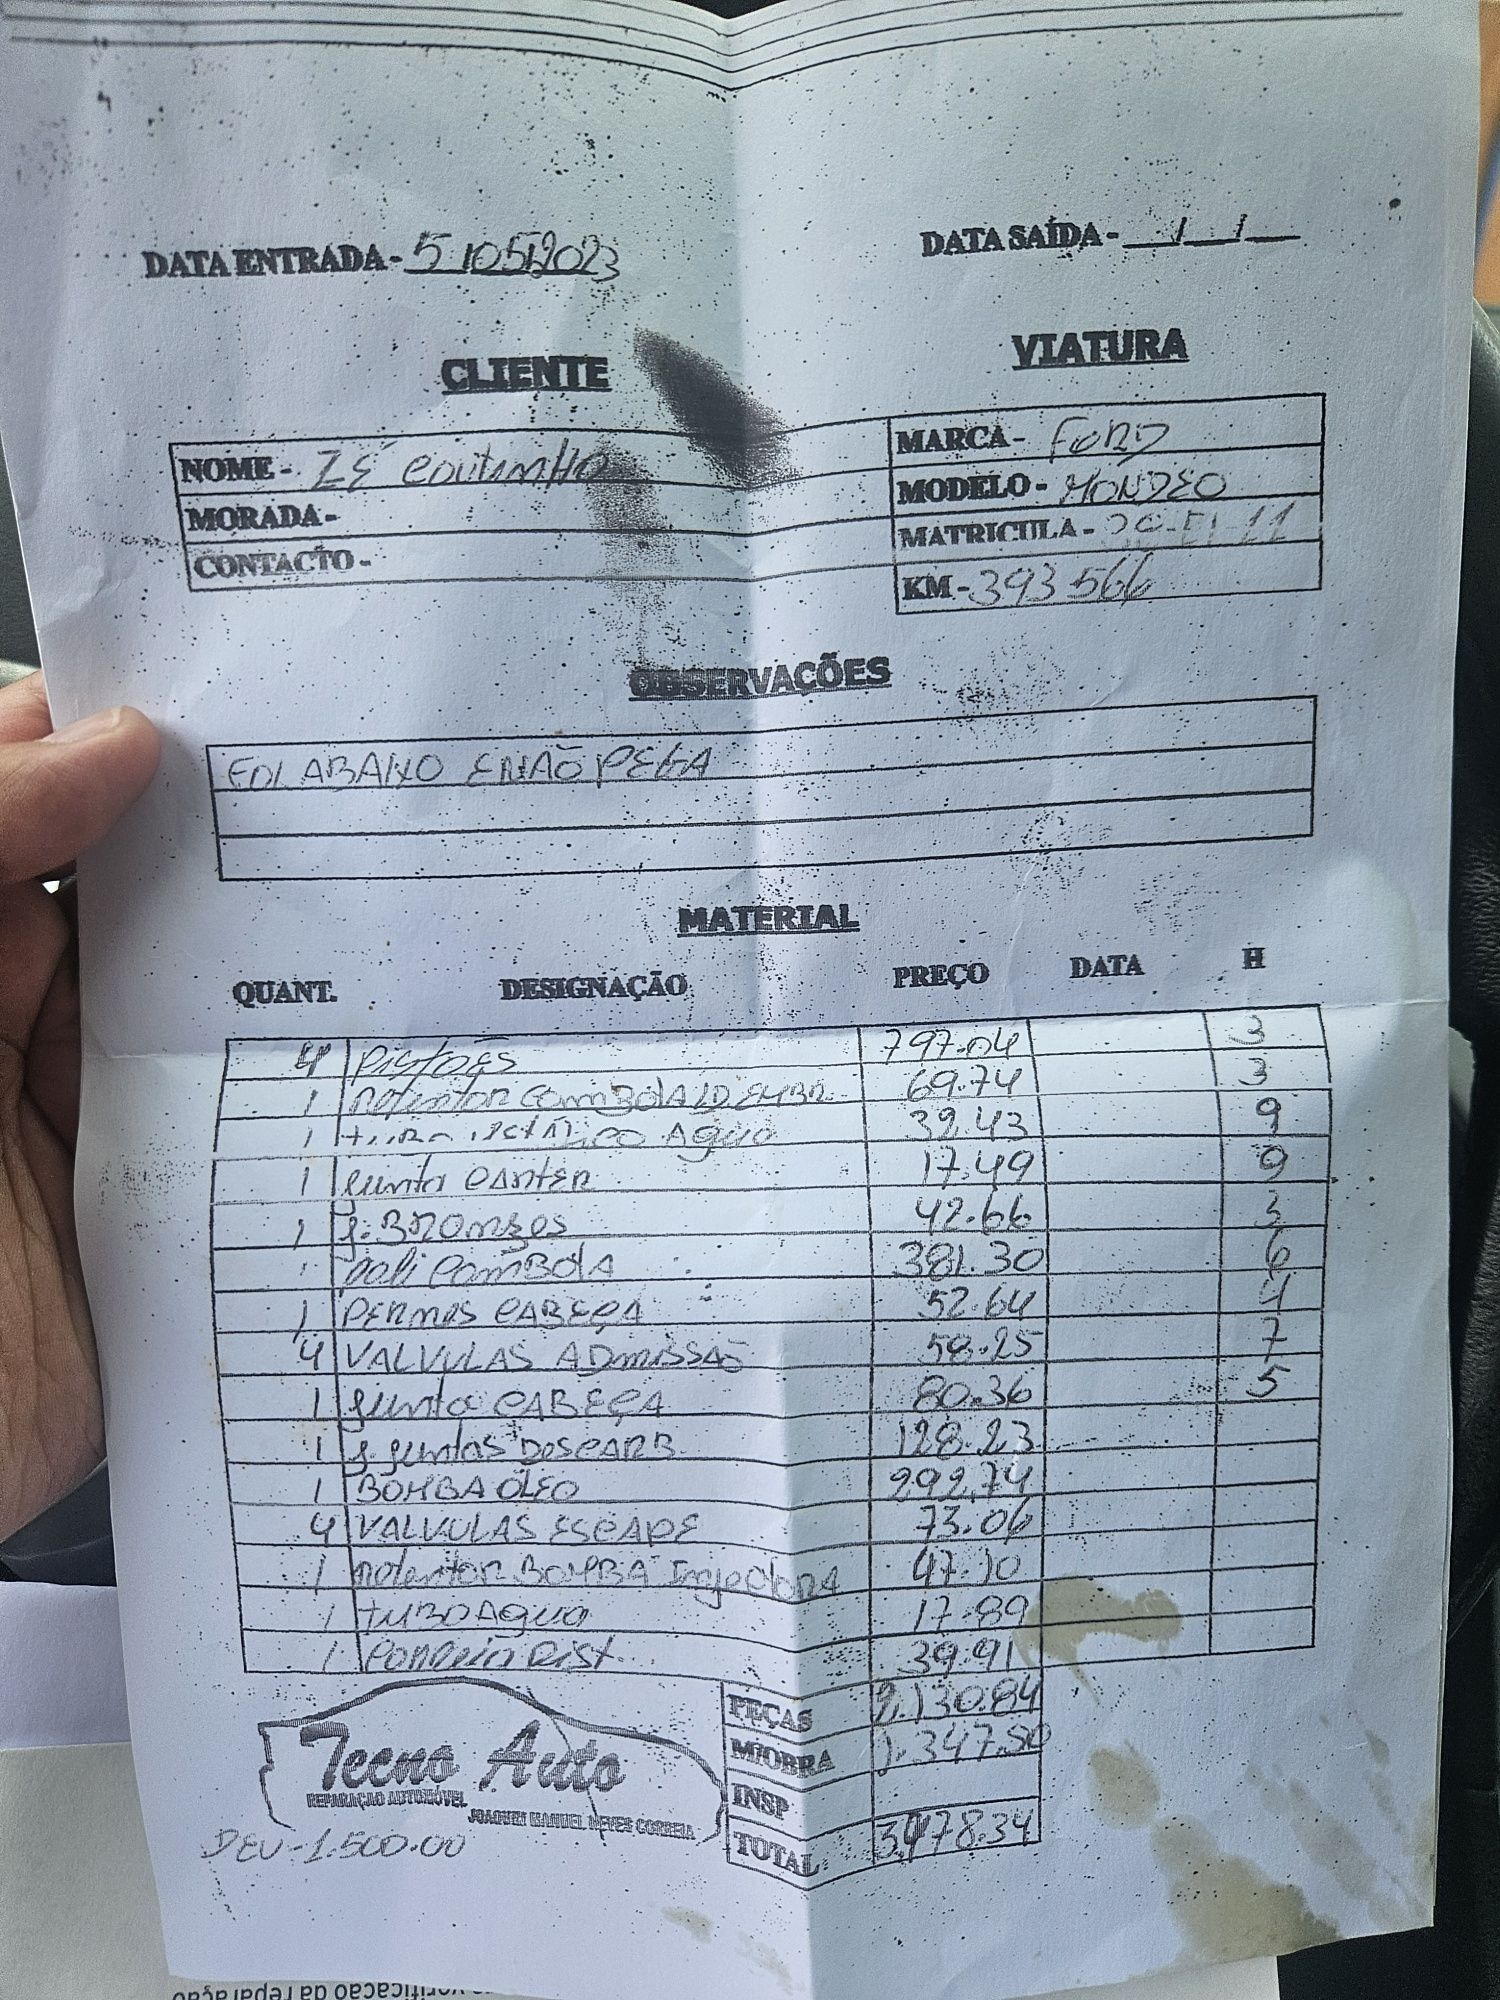 DATA ENTRADA - 5/05/2023
DATA SAÍDA - __/__/__
CLIENTE
VIATURA
NOME - ZÉ COUTINHO
MORADA -
CONTACTO -
MARCA - FORD
MODELO - MONDEO
MATRICULA - -11
KM - 393566
OBSERVAÇÕES
FOI ABAIXO E NÃO PEGA
MATERIAL
QUANT. DESIGNAÇÃO PREÇO DATA H
4 PISTOES 797.04 3
1 RETENTOR CAMBOTA LD EMBR. 69.74 3
1 TUBO AGUA 39.43 9
1 JUNTA CARTER 17.49 9
1 J. BRONZES 42.66
POLI CAMBOTA 381.30 6
1 PERNOS CABEÇA 52.64 4
4 VALVULAS ADMISSÃO 58.25 7
1 JUNTA CABEÇA 80.36 5
1 J. JUNTAS DESCARB 128.23
1 BOMBA ÓLEO 292.74
4 VALVULAS ESCAPE 73.06
1 RETENTOR BOMBA INJECTORA 47.10
1 TUBO AGUA 17.89
1 CORREIA DIST. 39.91
PEÇAS 2.130.84
M/OBRA 1.347.50
INSP
TOTAL 3.478.34
Tecno Auto
REPARAÇÃO AUTOMÓVEL
JOAQUIM MANUEL NEVES CORREIA
DEU - 1.500.00
verificação da reparação